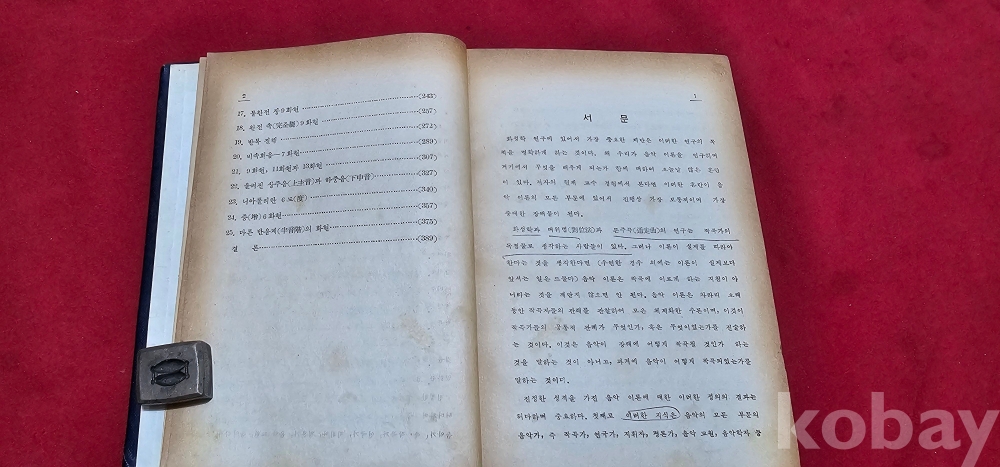 2
17. 틀린전 장9화현 (243)
18. 완전 속(完全屬)9화현 (257)
19. 반복 진행 (272)
20. 비속화음—7화현 (289)
21. 9화현, 11화현과 13화현 (307)
22. 올려진 상주음(上主音)과 하중음(下中音) (327)
23. 나아폴리탄 6도(度) (349)
24. 증(增)6화현 (357)
25. 다른 반음계(半音階)의 화현 (375)
결 론 (389)
1
서 문
화성학 연구에 있어서 가장 중요한 계단은 이러한 연구의 목
적을 명확하게 하는 것이다. 왜 우리가 음악 이론을 연구하며
거기에서 무엇을 배우게 되는가 함에 대하여 오늘날 많은 혼란
이 있다. 저자의 일제 교수 경험에서 본다면 이러한 혼란이 음
악 이론의 모든 부문에 있어서 진행상 가장 보통적이며 가장
중대한 장해물이 된다.
화성학과 대위법(對位法)과 둔주곡(遁走曲)의 연구는 작곡가의
독점물로 생각하는 사람들이 있다. 그러나 이론이 실제를 따라야
한다는 것을 생각한다면 (우연한 경우 외에는 이론이 실제보다
앞서는 일은 드물다) 음악 이론은 작곡에 이르게 하는 지침이 아
니라는 것을 깨닫지 않으면 안 된다. 음악 이론은 차라리 오래
동안 작곡자들의 관례를 관찰하여 모은 체계화한 추론이며, 이것이
작곡가들의 공통적 관례가 무엇인가, 혹은 무엇이었는가를 진술하
는 것이다. 이것은 음악이 장래에 어떻게 작곡될 것인가 하는
것을 말하는 것이 아니고, 과거에 음악이 어떻게 작곡되었는가를
말하는 것이다.
진정한 성격을 가진 음악 이론에 대한 이러한 정의의 결과는
허다하며 중요하다. 첫째로 이러한 지식은 음악의 모든 부문의
음악가, 즉 작곡가, 연주가, 지휘자, 평론가, 음악 교원, 음악학자
kobay